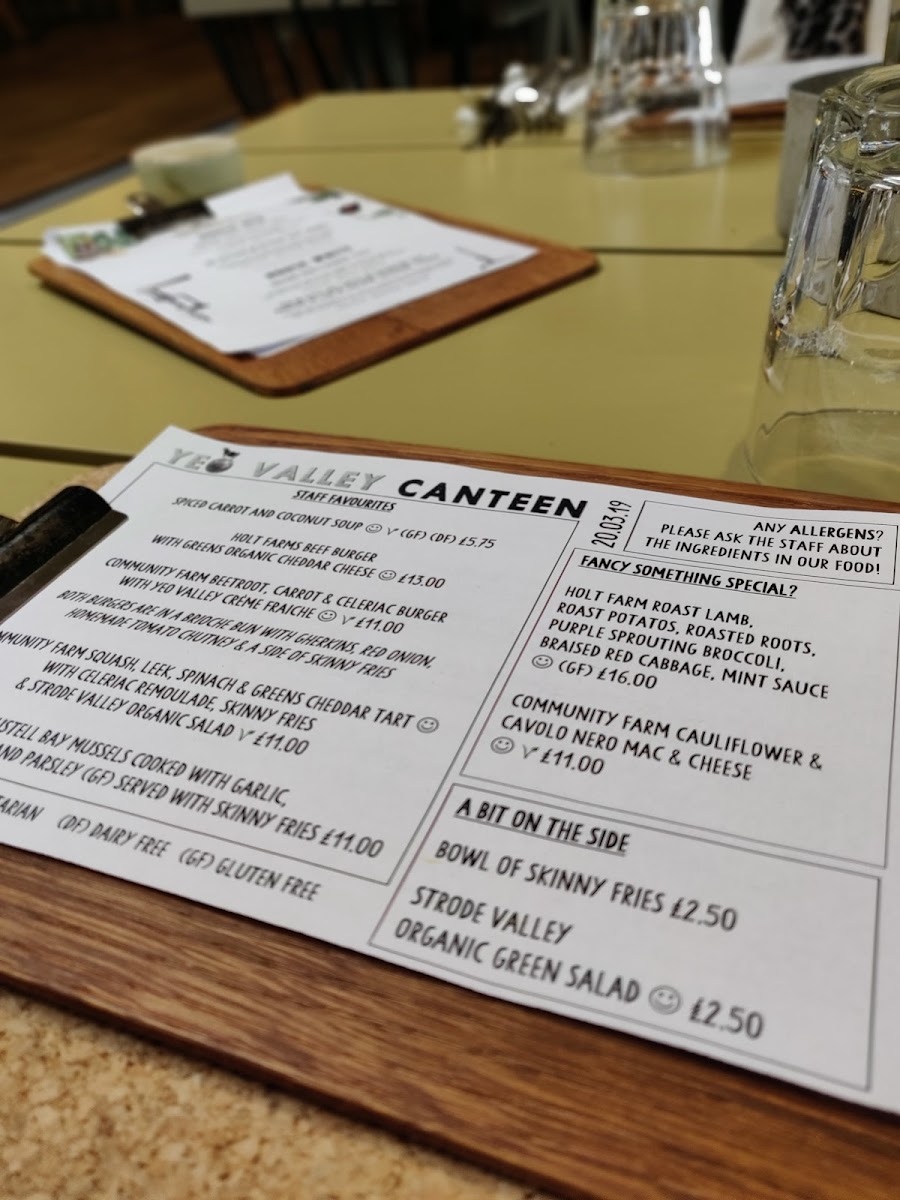 YEO VALLEY CANTEEN
STAFF FAVOURITES
SPICED CARROT AND COCONUT SOUP ☺ V (GF) (DF) £5.75
HOLT FARMS BEEF BURGER
WITH GREENS ORGANIC CHEDDAR CHEESE ☺ £13.00
COMMUNITY FARM BEETROOT, CARROT & CELERIAC BURGER
WITH YEO VALLEY CRÉME FRAICHE ☺ V £11.00
BOTH BURGERS ARE IN A BRIOCHE BUN WITH GHERKINS, RED ONION,
HOMEMADE TOMATO CHUTNEY & A SIDE OF SKINNY FRIES
MMUNITY FARM SQUASH, LEEK, SPINACH & GREENS CHEDDAR TART ☺
WITH CELERIAC REMOULADE, SKINNY FRIES
& STRODE VALLEY ORGANIC SALAD V £11.00
USTELL BAY MUSSELS COOKED WITH GARLIC,
AND PARSLEY (GF) SERVED WITH SKINNY FRIES £11.00
TARIAN (DF) DAIRY FREE (GF) GLUTEN FREE
20.03.19
ANY ALLERGENS?
PLEASE ASK THE STAFF ABOUT
THE INGREDIENTS IN OUR FOOD!
FANCY SOMETHING SPECIAL?
HOLT FARM ROAST LAMB,
ROAST POTATOS, ROASTED ROOTS,
PURPLE SPROUTING BROCCOLI,
BRAISED RED CABBAGE, MINT SAUCE
☺ (GF) £16.00
COMMUNITY FARM CAULIFLOWER &
CAVOLO NERO MAC & CHEESE
☺ V £11.00
A BIT ON THE SIDE
BOWL OF SKINNY FRIES £2.50
STRODE VALLEY
ORGANIC GREEN SALAD ☺ £2.50